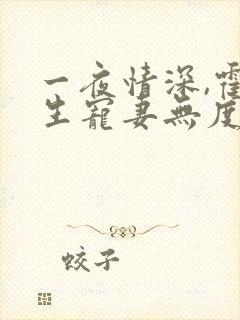 一夜情深,霍
生寵妻無度
蛟子